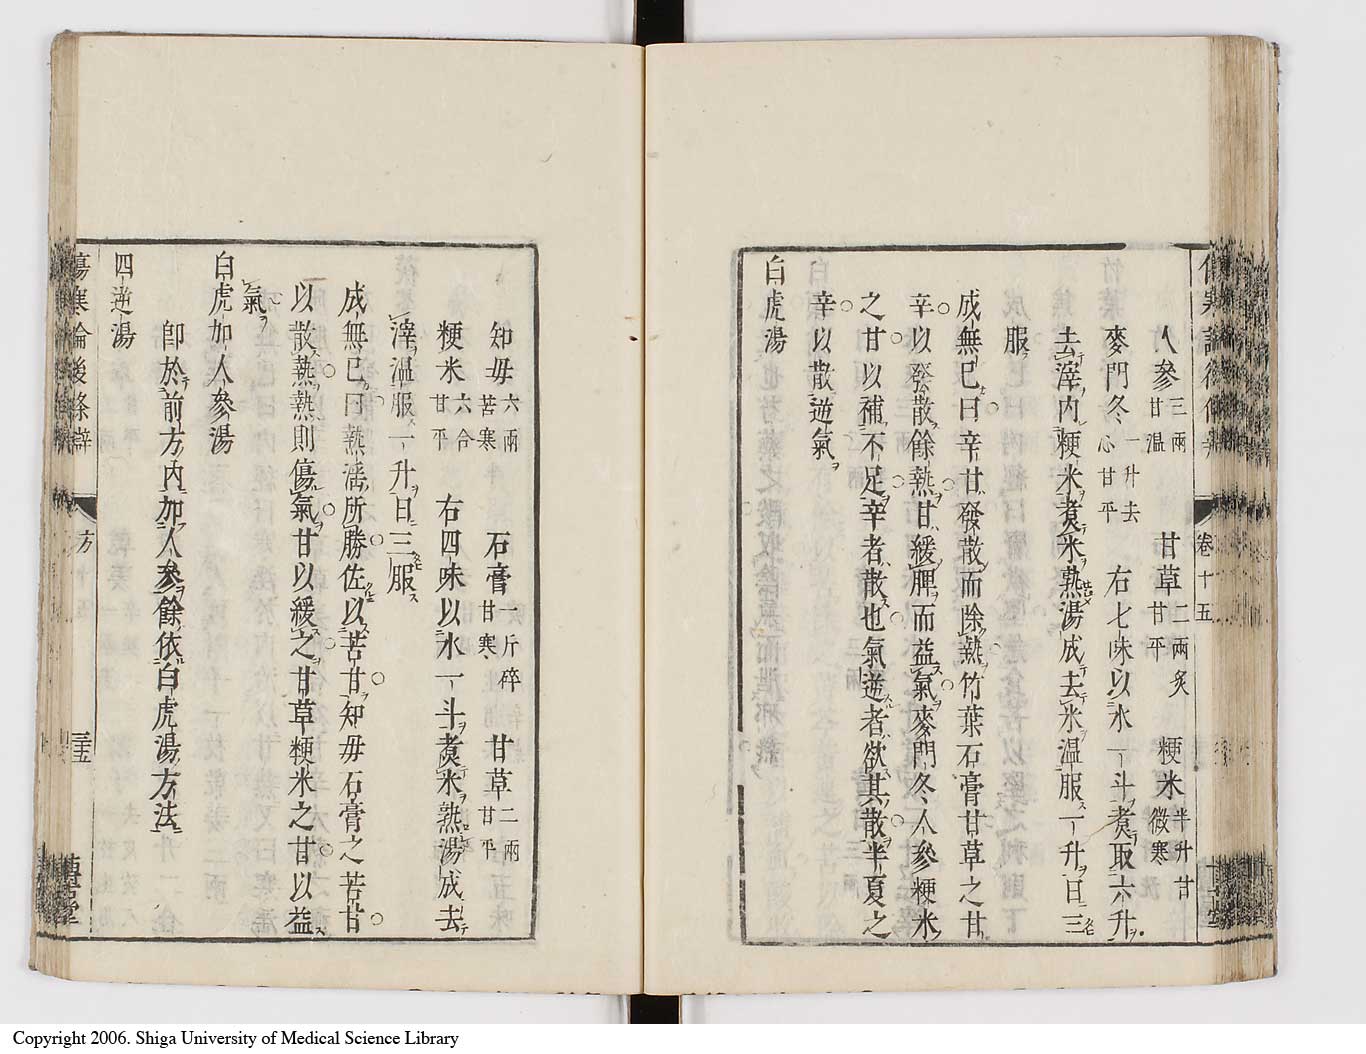 人參三兩甘温　甘草二兩炙甘平　粳米半升甘微寒
麥門冬一升去心甘平　右七味以水一斗煮取六升
去滓内粳米煮米熟湯成去米温服一升日三
服
成無已曰辛甘發散而除熱竹葉石膏甘草之甘
辛以發散餘熱甘緩脾而益氣麥門冬人參粳米
之甘以補不足辛者散也氣逆者欲其散半夏之
辛以散逆氣
白虎湯
卷十五
知毋六兩苦寒　石膏一斤碎甘寒　甘草二兩甘平
粳米六合甘平　右四味以水一斗煮米熟湯成去
滓温服一升日三服
成無已曰熱淫所勝佐以苦甘知毋石膏之苦甘
以散熱熱則傷氣甘以緩之甘草粳米之甘以益
氣
白虎加人參湯
卽於前方内加人參餘依白虎湯方法
四逆湯
傷寒論後條辯　方　三五
Copyright 2006. Shiga University of Medical Science Library